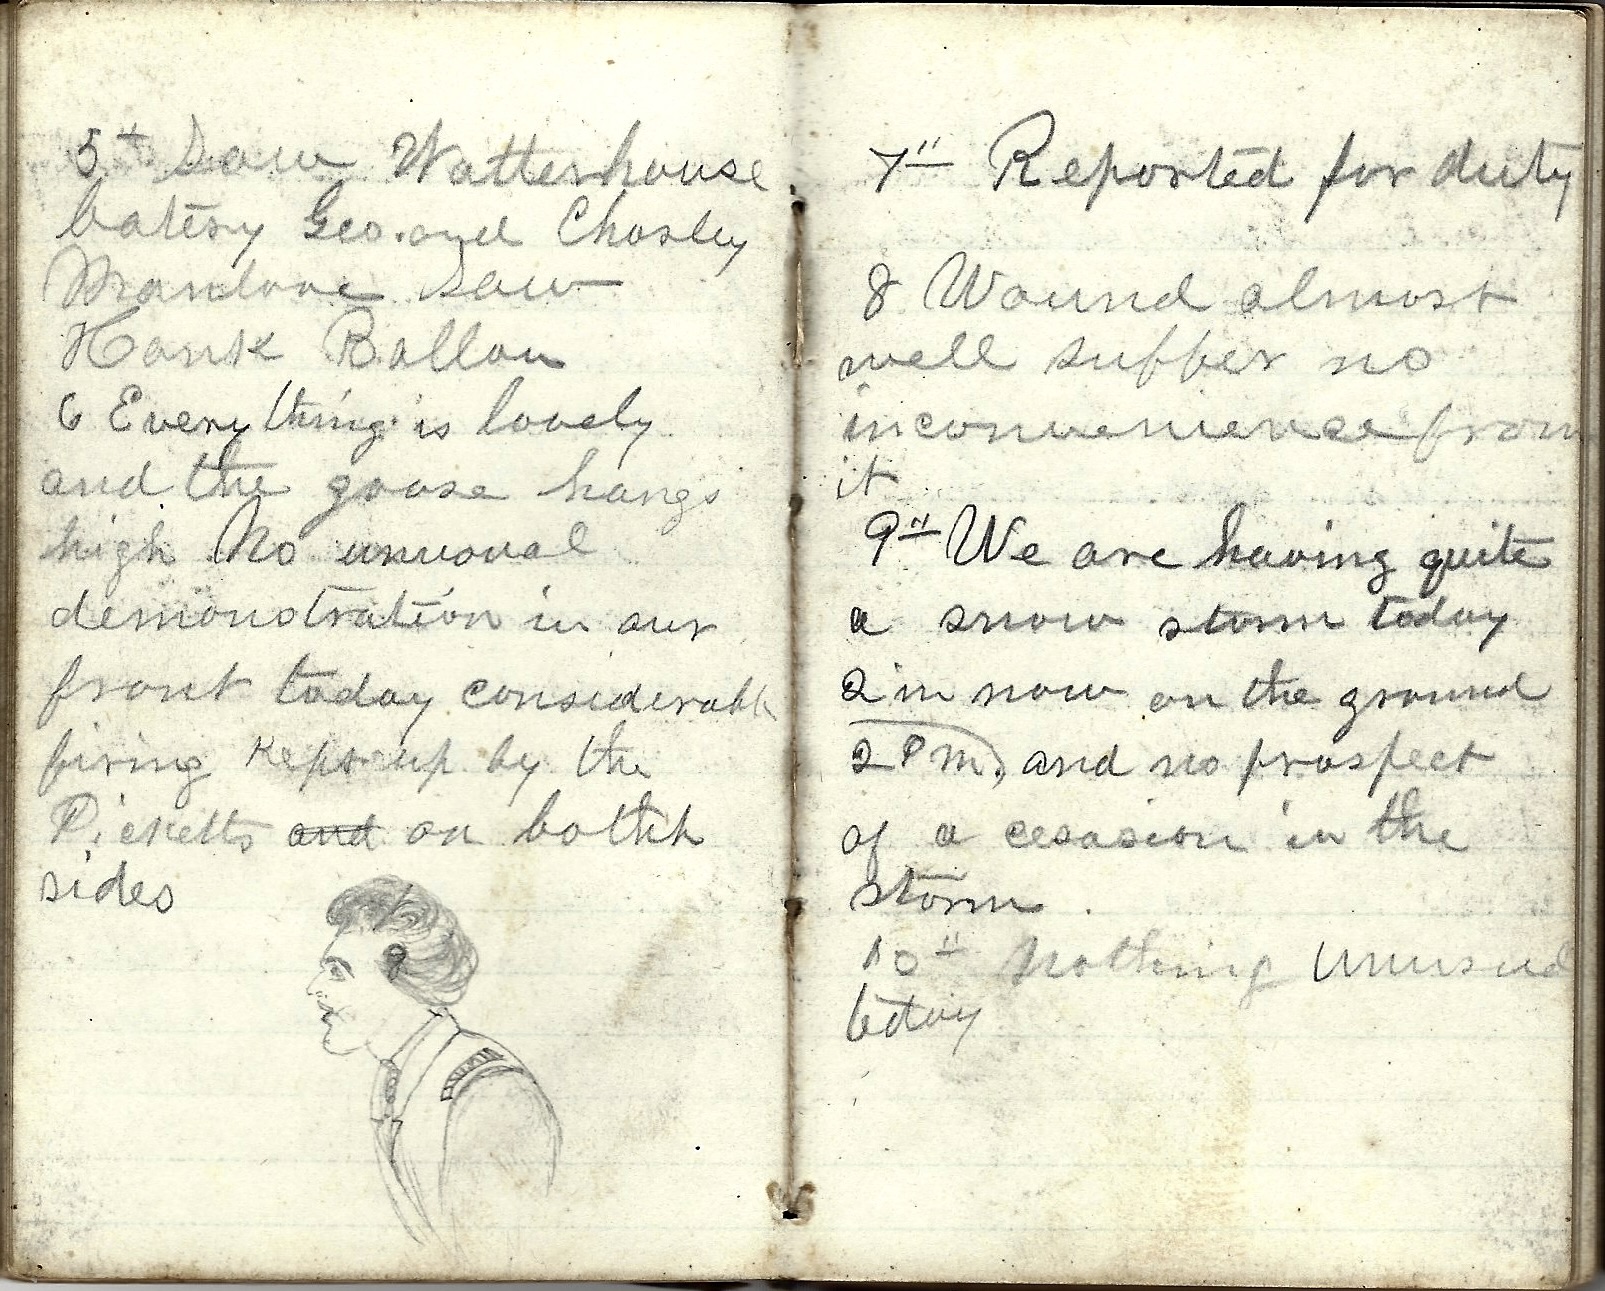 5th Saw Watterhouse
batery Geo. and Chosley
Manlove Saw
Hank Ballou
6 Everything is lovely
and the goose hangs
high No unusual
demonstration in our
front today considerable
firing kept up by the
Picketts and on bothh
sides
7" Reported for duty
8 Wound almost
well suffer no
inconvenience from
it
9" We are having quite
a snow storm today
2 in now on the ground
2 P m, and no prospect
of a cesasion in the
storm.
10" Nothing unusual
today